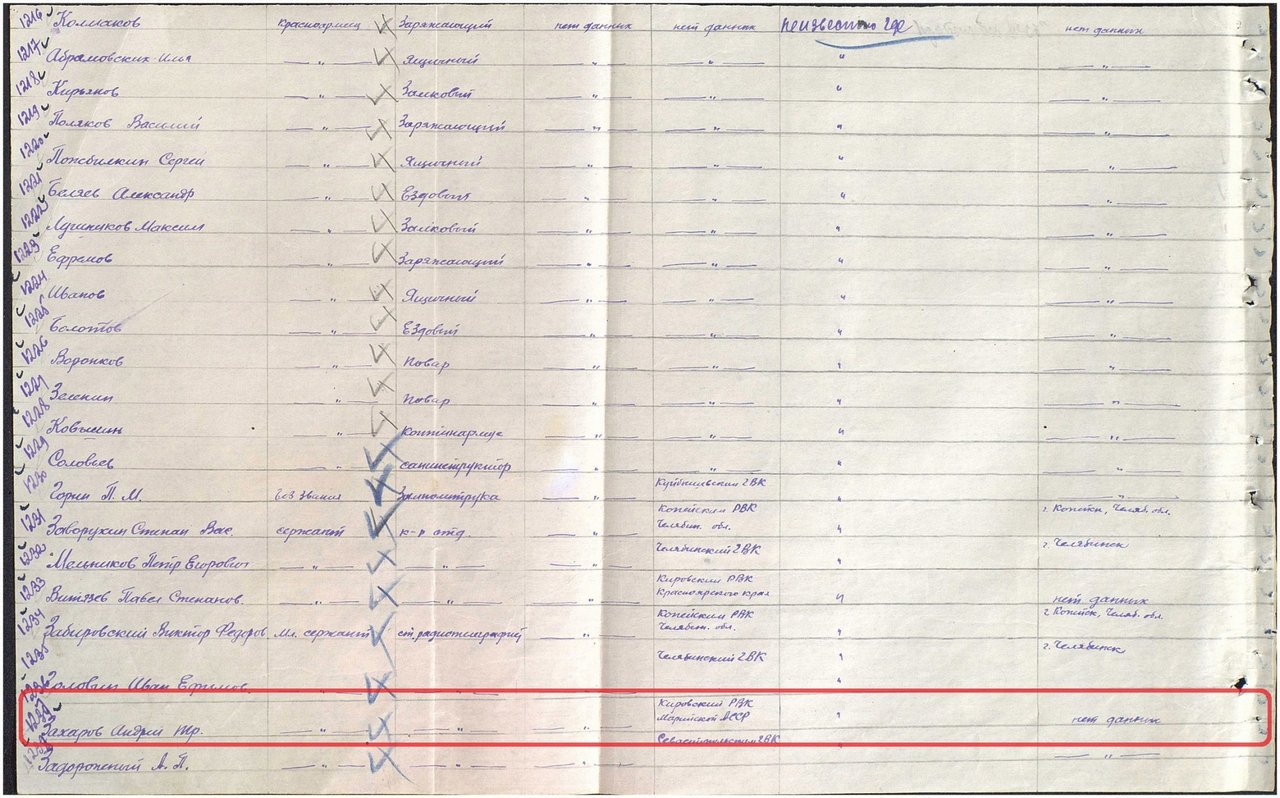 1216 Колмаков красноармеец 4 Заряжающий нет данных нет данных неизвестно где нет данных
1217 Абрамовских Илья —"— 4 Ящичный —"— —"— " —"—
1218 Кирьянов —"— 4 Замковый —"— —"— " —"—
1219 Поляков Василий —"— 4 Заряжающий —"— —"— " —"—
1220 Сергей —"— 4 Ящичный —"— —"— " —"—
1221 Беляев Александр —"— 4 Ездовый —"— —"— " —"—
1222 Лушников Максим —"— 4 Замковый —"— —"— " —"—
1223 Ефремов —"— 4 Заряжающий —"— —"— " —"—
1224 Иванов —"— 4 Ящичный —"— —"— " —"—
1225 Болотов —"— 4 Ездовый —"— —"— " —"—
1226 Воронков —"— 4 Повар —"— —"— " —"—
1227 Зеленин —"— 4 Повар —"— —"— " —"—
1228 Ковышин —"— 4 —"— —"— " —"—
1229 Соловьев 4 санинструктор —"— —"— " —"—
1230 Горин П. М. без звания 4 —"— Куйбышевский ГВК " —"—
1231 Заворухин Степан Вас. сержант 4 к-р отд. —"— Копейским РВК " г. Копейск, Челяб. обл.
Челябин. обл.
1232 Мельников Петр Егорович —"— 4 —"— —"— Челябинский ГВК г. Челябинск
1233 Витязев Павел Степанов. —"— 4 —"— —"— Кировский РВК " нет данных
Красноярского края
1234 Забировский Виктор Федоров. Мл. сержант 4 ст. радиотелеграфист —"— Копейским РВК " г. Копейск, Челяб. обл.
Челябин. обл.
1235 Челябинский ГВК " г. Челябинск
1236 Головин Иван Ефимов. —"— 4 —"— —"— "
1237 Захаров Андрей —"— 4 —"— —"— Кировский РВК " нет данных
Марийской АССР
Севастопольским ГВК
Задорожный А. П. —"— 4 —"— —"— " —"—